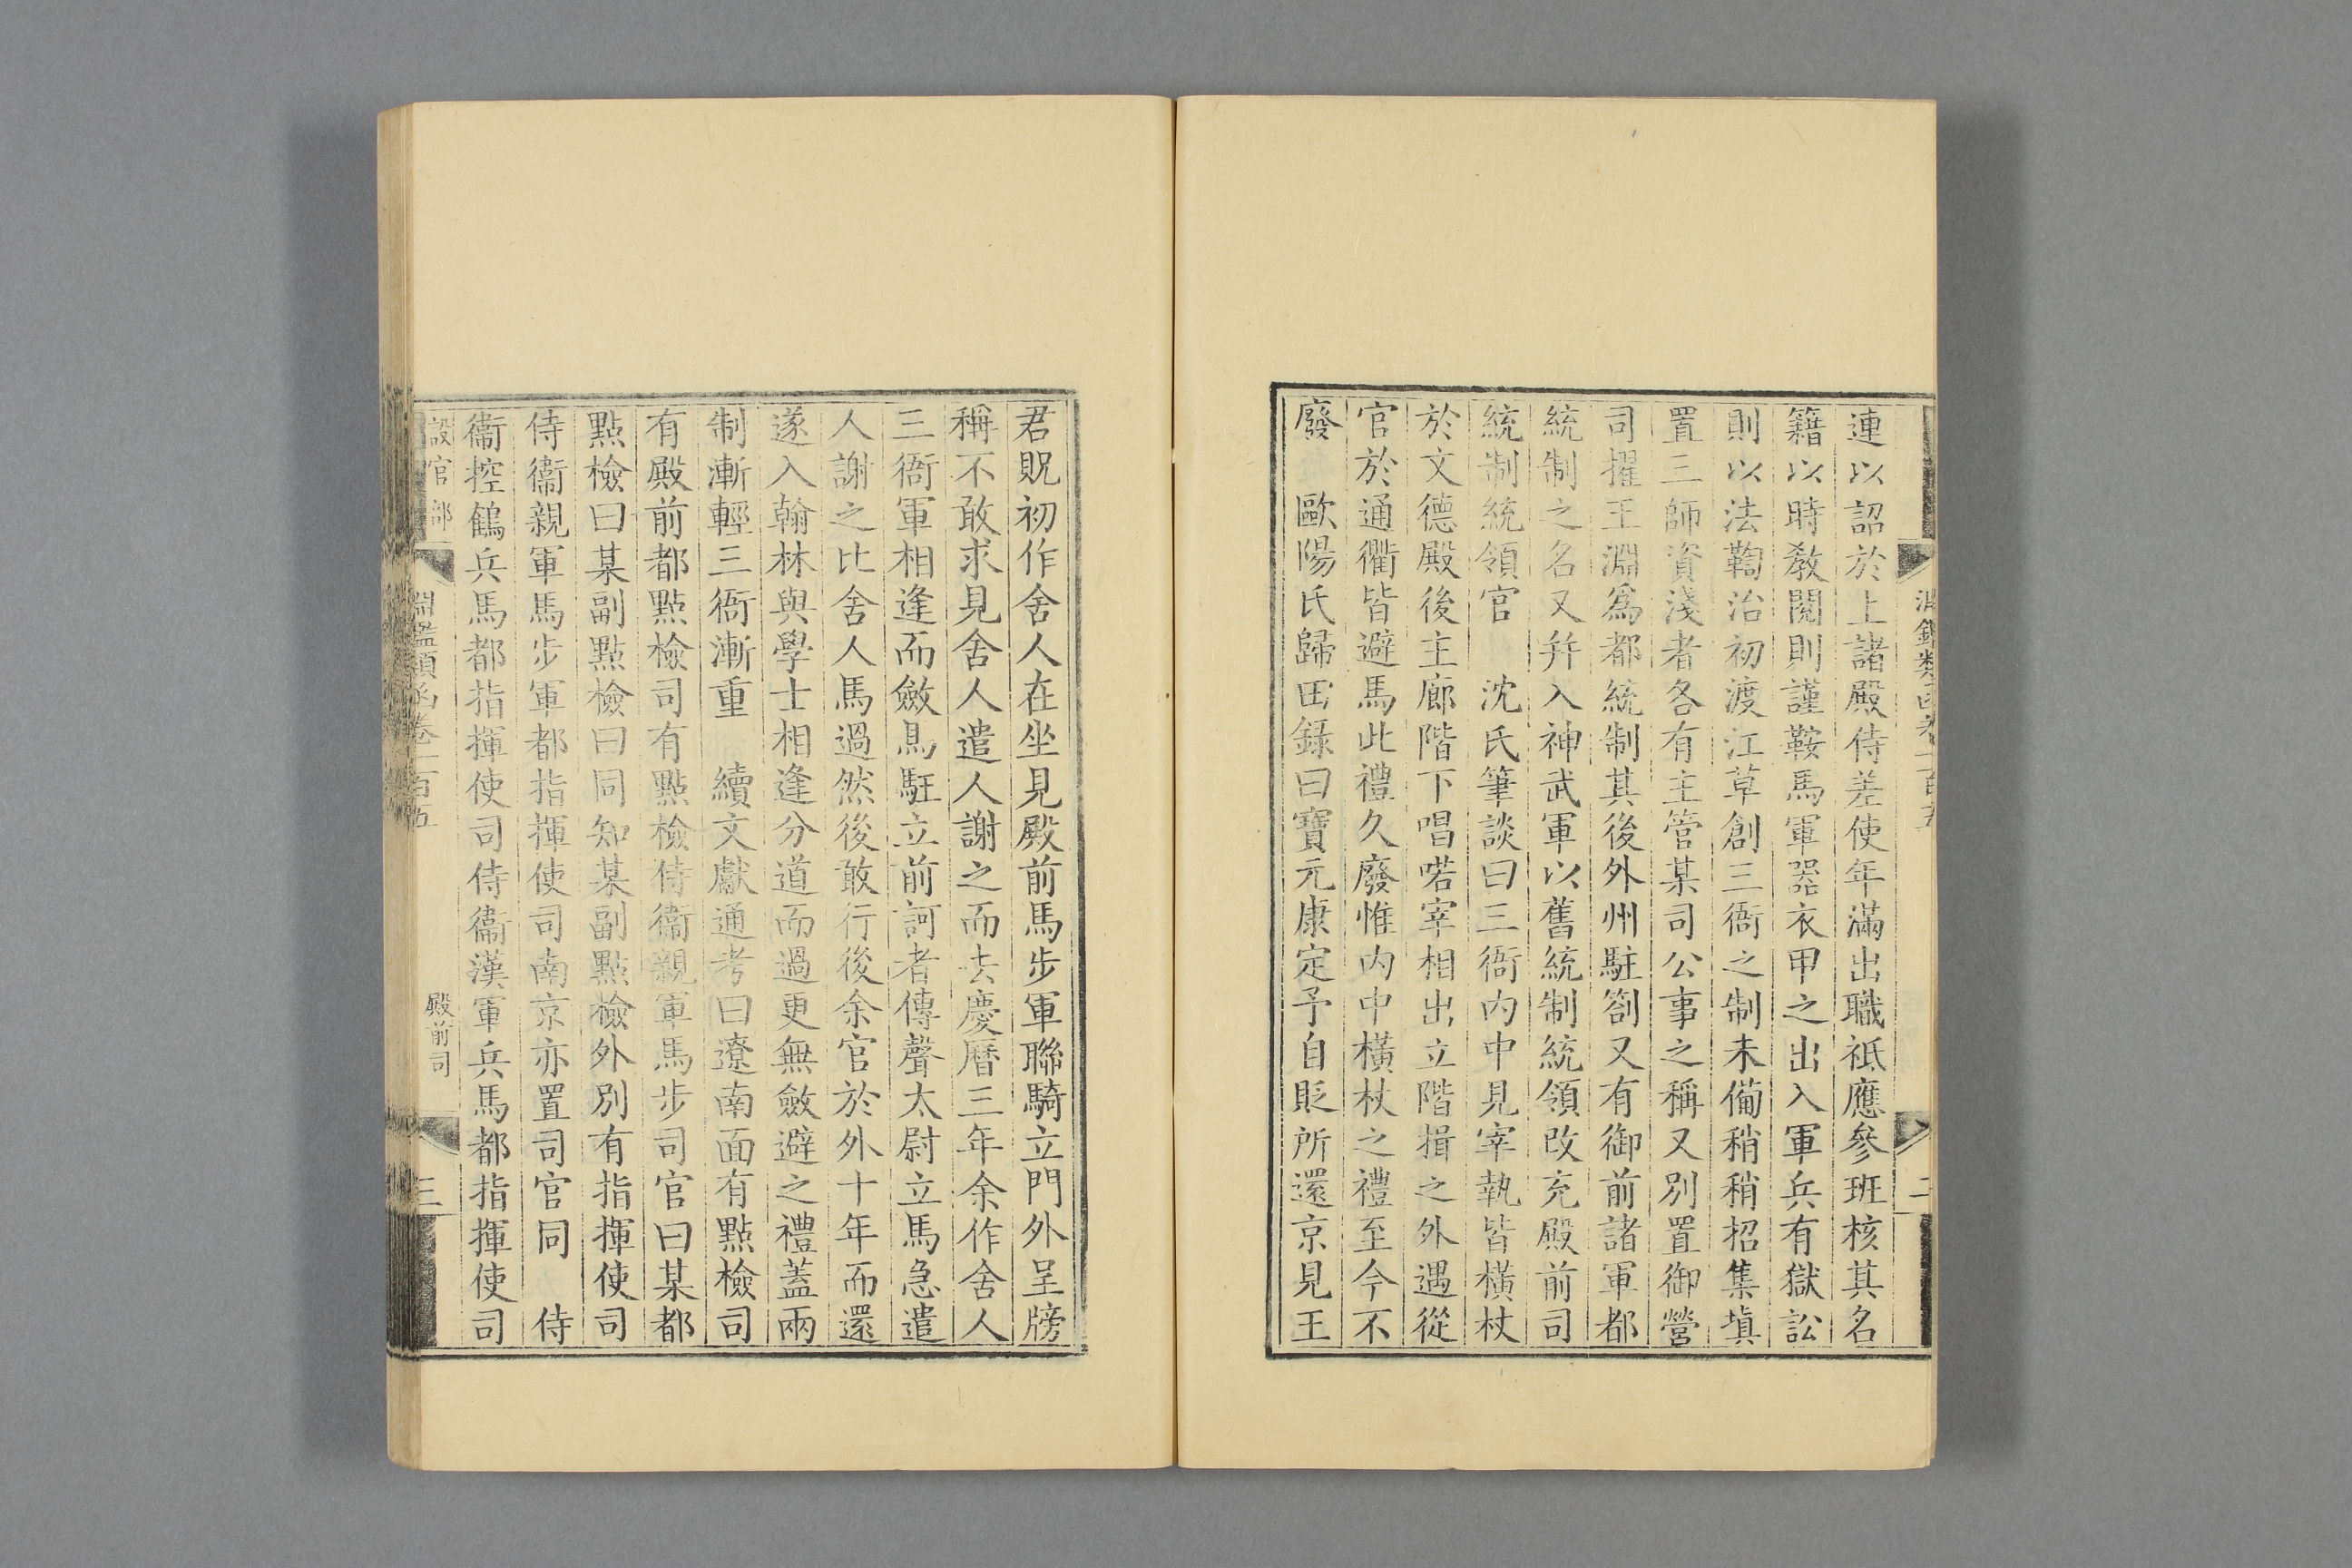 淵鑑類函卷一百五
二
連以詔於上諸殿侍差使年滿出職祗應參班核其名
籍以時教閱則謹鞍馬軍器衣甲之出入軍兵有獄訟
則以法鞫治初渡江草創三衙之制未備稍稍招集塡
置三帥資淺者各有主管某司公事之稱又別置御營
司擢王淵爲都統制其後外州駐劄又有御前諸軍都
統制之名又幷入神武軍以舊統制統領改充殿前司
統制統領官　沈氏筆談曰三衙內中見宰執皆橫杖
於文德殿後主廊階下唱喏宰相出立階揖之外遇從
官於通衢皆避馬此禮久廢惟內中橫杖之禮至今不
廢　歐陽氏歸田錄曰寶元康定予自貶所還京見王
君貺初作舍人在坐見殿前馬步軍聯騎立門外呈牓
稱不敢求見舍人遣人謝之而去慶曆三年余作舍人
三衙軍相逢而斂馬駐立前訶者傳聲太尉立馬急遣
人謝之比舍人馬過然後敢行後余官於外十年而還
遂入翰林與學士相逢分道而過更無斂避之禮蓋兩
制漸輕三衙漸重　續文獻通考曰遼南面有點檢司
有殿前都點檢司有點檢侍衞親軍馬步司官曰某都
點檢曰某副點檢曰同知某副點檢外別有指揮使司
侍衞親軍馬步軍都指揮使司南京亦置司官同　侍
衞控鶴兵馬都指揮使司侍衞漢軍兵馬都指揮使司
設官部
淵鑑類函卷一百五
殿前司
三